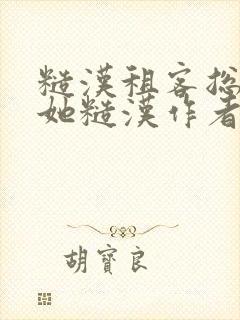 糙漢租客总
她糙漢作者
胡寶良